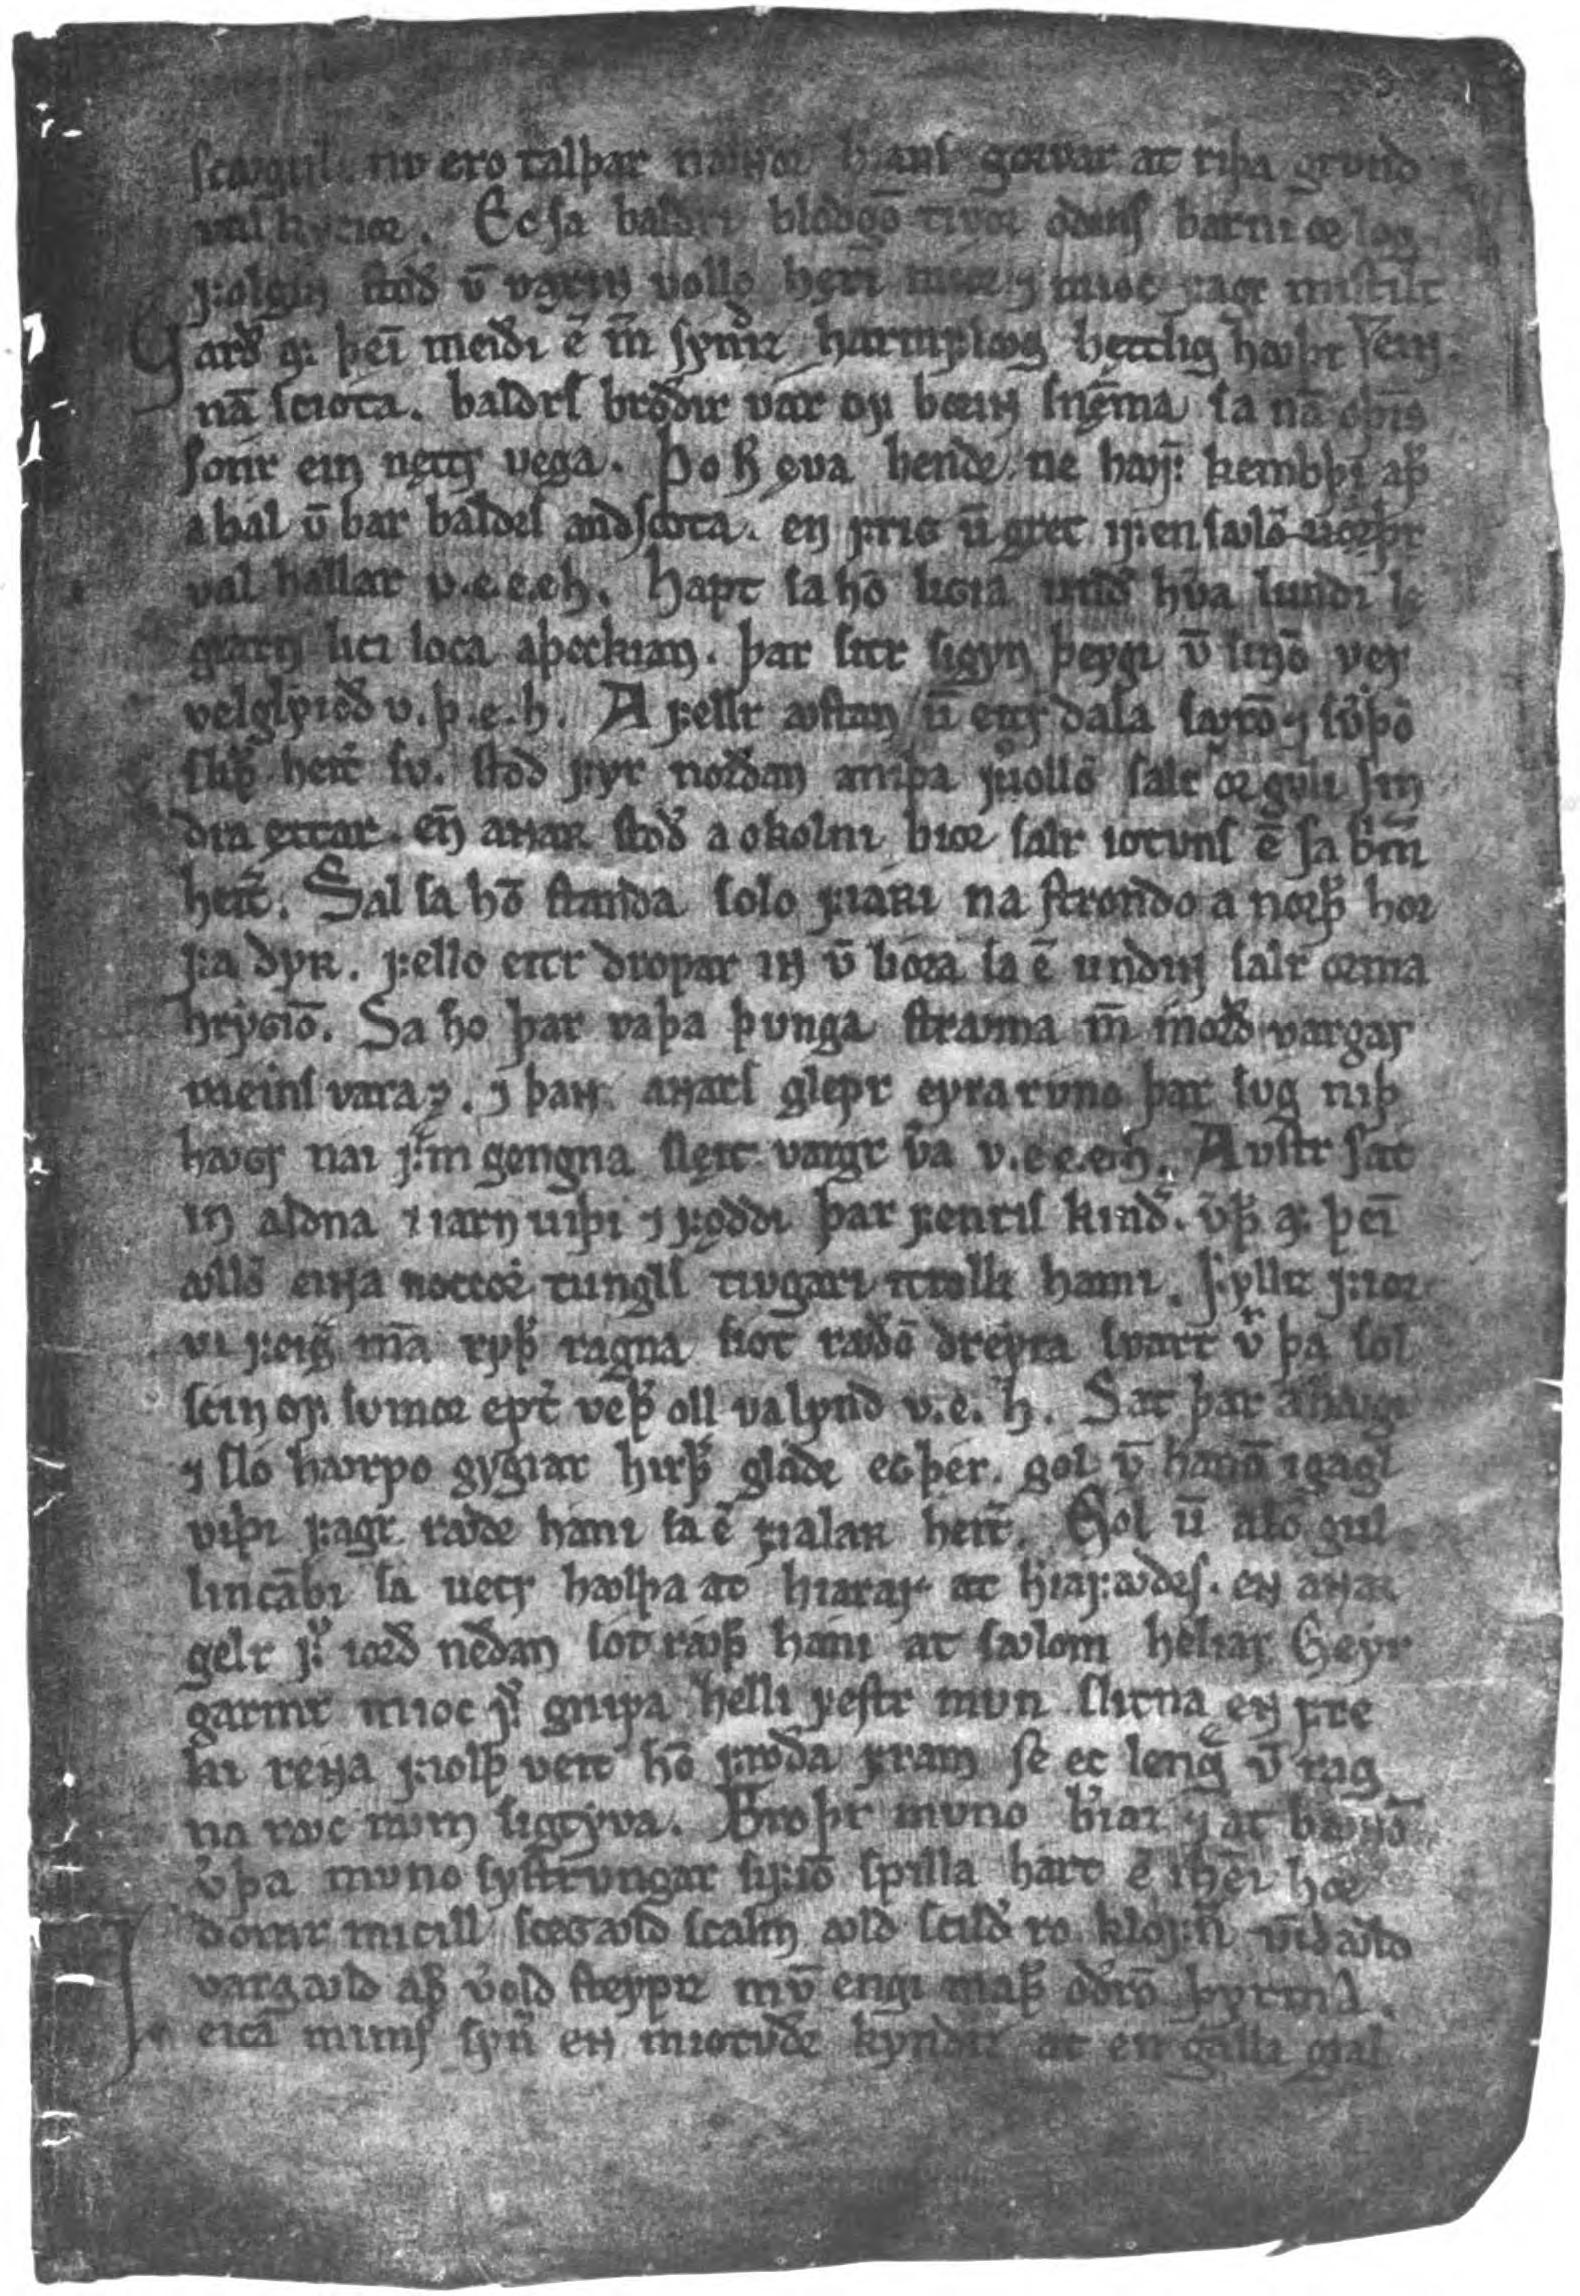 scꜹgul. nv ero talþar nąnnor herians gorvar at riþa grund
valkyrior. Ec sa baldri blóðgō tívor oðins barni or lǫg
folgin stóð ū vaxiɴ vollo hęri miór ⁊ mioc fagr mistilt
Varð af þeī meiði ē mer sýndiz harmflꜹg hęttlig hꜹþr nam
nā sciota. baldrs bróðir var of boriɴ snēma sa nā oþins
sonr ein nęttr vega. Þo h̄ ęva hendr ne hꜹfuþ kembþi aþr
a bál ū bar baldrs andscota. en frig ū grét i fen sꜹlō vá
val hallar v. e. e. e. h. Hapt sa hō licia undir hvera lundi lę
giarn lici loca aþeckian. þar sitr sigyn þeygi ū sinō ver
velglýioð v. þ. e. h. A fellr ꜹstan ū eitr dala sꜹxō ⁊ svþō
sliþr heitir sv. stóð fyr norðan a niþa vǫllō salr or gulli sin
dra ęttar. en aɴaʀ stoð a okólni bior salr iotuns ē sa brimir
heitir. Sal sa hō standa sólo fiaʀi na strondo a norþr hor
fa dyʀ. fello eitr dropar inn ū lióra sa ē undinn salr orma
hryɢiō. Sa hō þar vaþa þunga strꜹma menn meins vara ⁊ morð vargar
meins vara ⁊. ⁊ þaɴ aɴars glepr eyra rúno þar sꜹg niþ
hꜹɢr nái fram gengna sleit vargr vera v. e. e. e. h. Austr sat
in aldna i iarn viþi ⁊ fǫddi þar fenris kindir. verþr af þeī
ꜹllō eiɴa noccorr tungls tiugari i trollz hami. Fylliz fior
vi feigra manna ryþr ragna siot rꜹðō dreyra svart verþa sol
scin of sumor eptir veþr oll válynd v. e. h. Sat þar a haugi
⁊ sló hꜹrpo gygiar hirþir glaðr egþer. gól ū hanō i gagl
viþi fagr rꜹðr hani sa ē fialaʀ heitir. Gól ū asō gul
lincābi sa vecr hꜹlþa at hiarar at heriafꜹdrs. en aɴaʀ
gelr fyr iorð neðan sót rꜹþr hani at sꜹlom heliar Geyr
garmr mioc fyr gnipa helli festr mun slitna en fre
ki reɴa fiolþ veit hō frꜹða fram sé ec lengra ū rag
na rꜹc rꜹm sigtýva. Brǿþr muno beriaz ⁊ at bꜹnō
verþa muno systrungar sifiō spilla hart ē i heimi hór
domr mikill sceɢꜹld scalm ꜹld scildir ro klofnir vindꜹld
vargꜹld aþr verold steypiz mun engi maþr oðrō þyrma.
Leica mims synir en miotuðr kyndiz at en galla gial